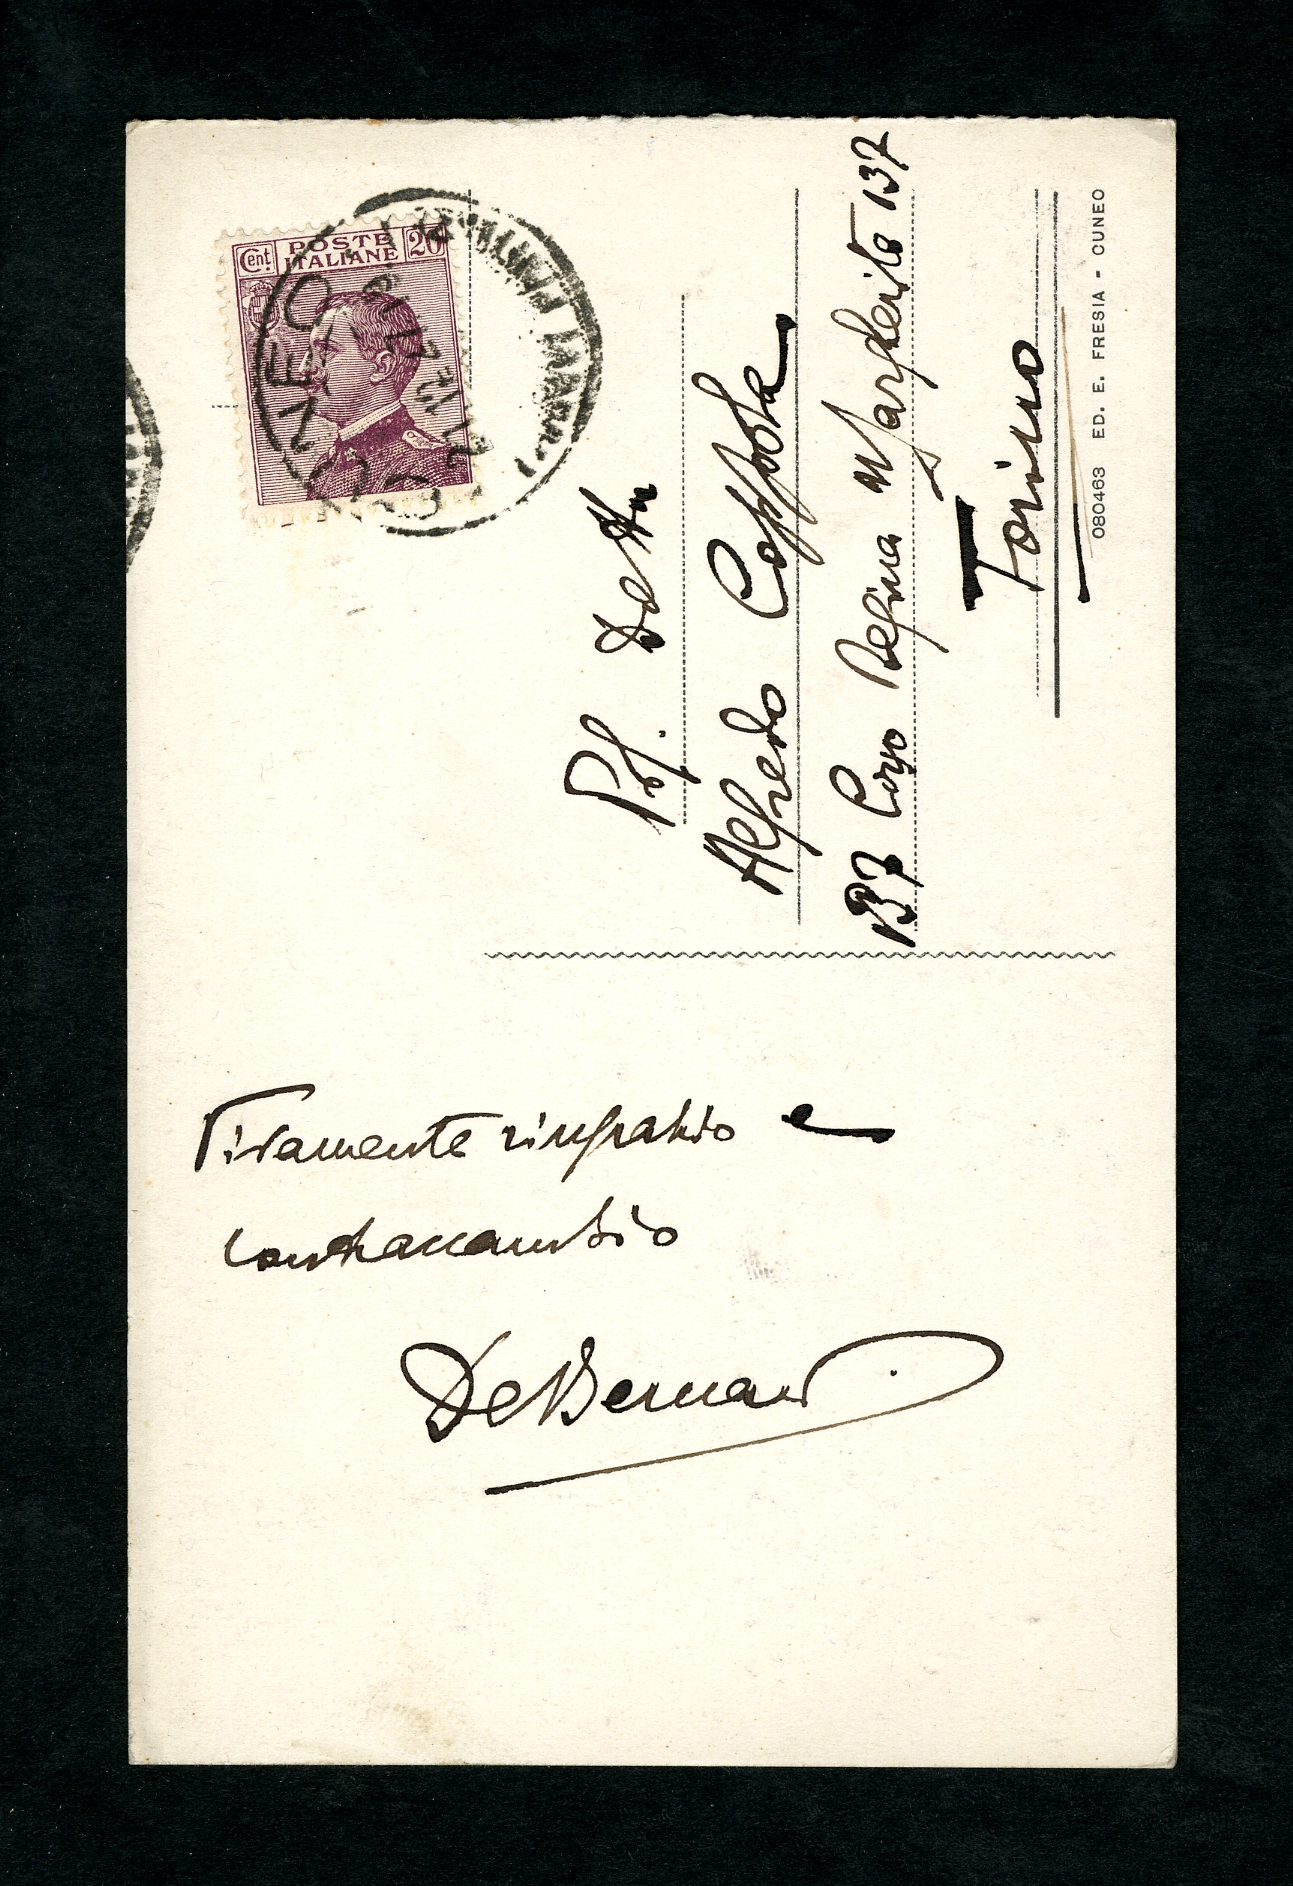 Cent. POSTE ITALIANE 20
CUNEO
Prof. Dottr
Alfredo Coppola
137 Corso Regina Margherita 137
Torino
080463 ED. E. FRESIA - CUNEO
Vivamente ringrazio e
contraccambio